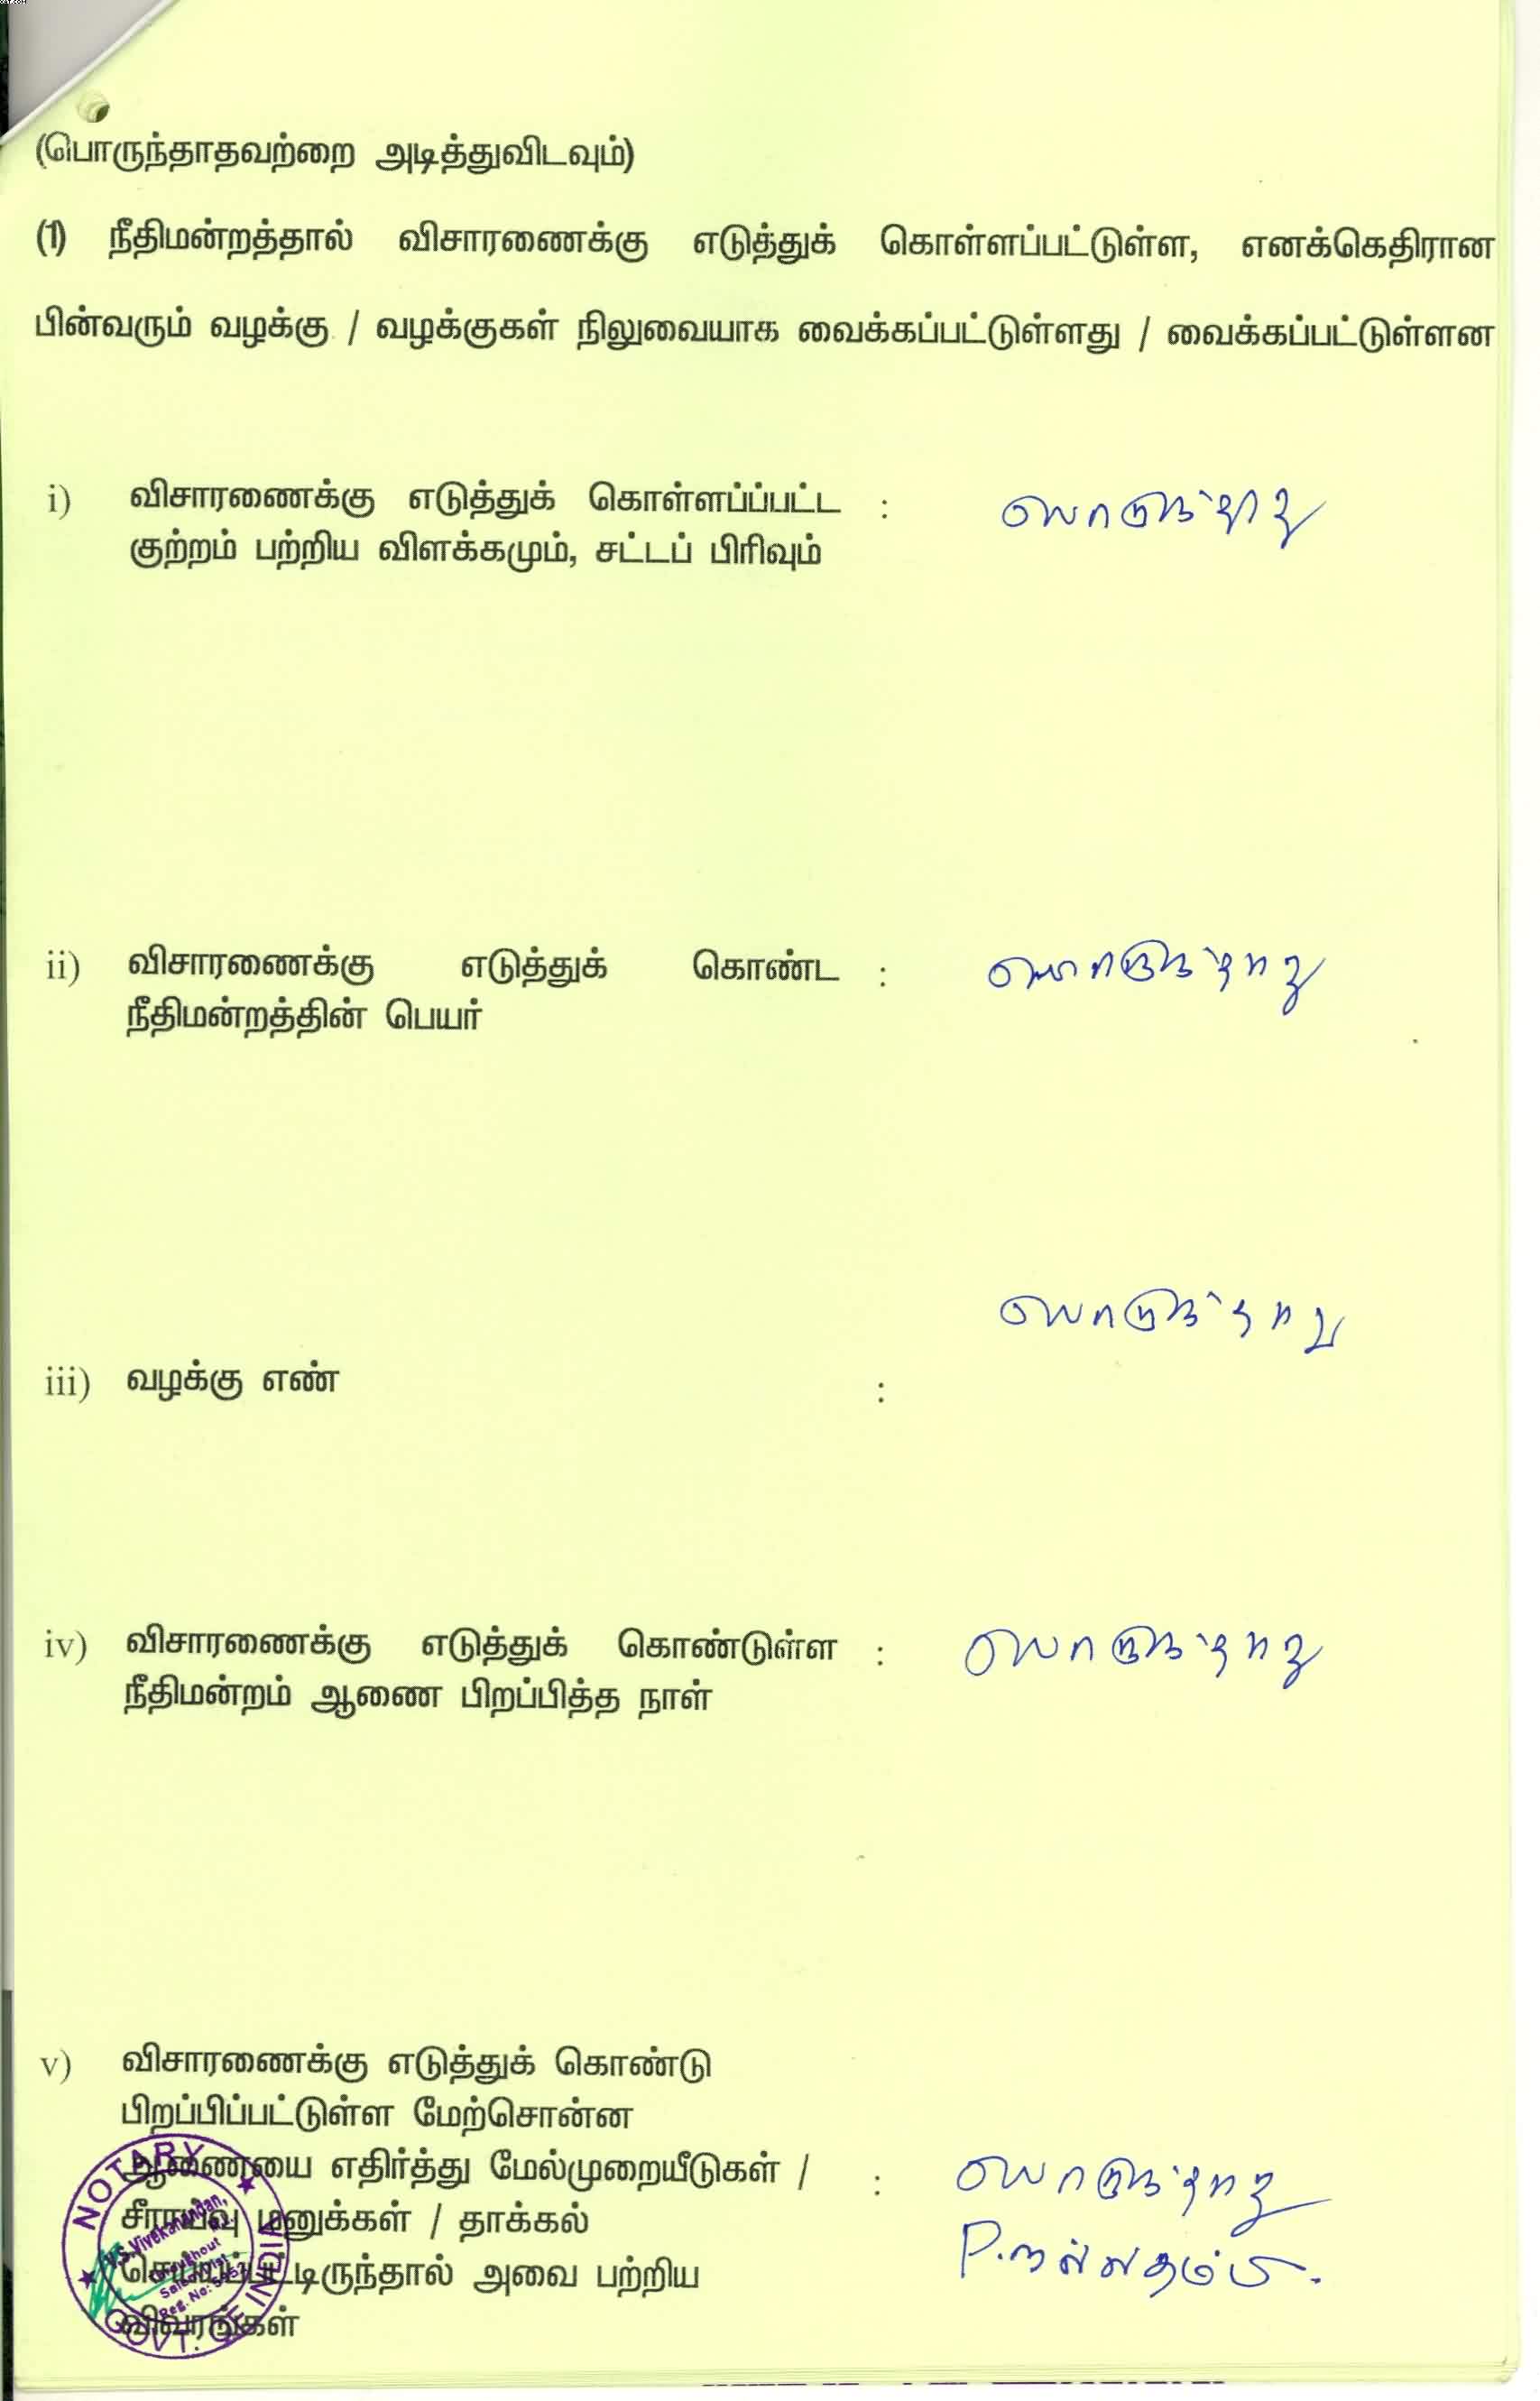 (பொருந்தாதவற்றை அடித்துவிடவும்)
(1) நீதிமன்றத்தால் விசாரணைக்கு எடுத்துக் கொள்ளப்பட்டுள்ள, எனக்கெதிரான
பின்வரும் வழக்கு / வழக்குகள் நிலுவையாக வைக்கப்பட்டுள்ளது / வைக்கப்பட்டுள்ளன
i) விசாரணைக்கு எடுத்துக் கொள்ளப்ப்பட்ட : பொருந்தாது
குற்றம் பற்றிய விளக்கமும், சட்டப் பிரிவும்
ii) விசாரணைக்கு எடுத்துக் கொண்ட : பொருந்தாது
நீதிமன்றத்தின் பெயர்
பொருந்தாது
iii) வழக்கு எண் :
iv) விசாரணைக்கு எடுத்துக் கொண்டுள்ள : பொருந்தாது
நீதிமன்றம் ஆணை பிறப்பித்த நாள்
v) விசாரணைக்கு எடுத்துக் கொண்டு
பிறப்பிப்பட்டுள்ள மேற்சொன்ன
ஆணையை எதிர்த்து மேல்முறையீடுகள் / : பொருந்தாது
சீராய்வு மனுக்கள் / தாக்கல்
செய்யப்பட்டிருந்தால் அவை பற்றிய P.நல்லதம்பி.
விவரங்கள்
NOTARY
V.S.Vivekanandan,
GOVT. OF INDIA